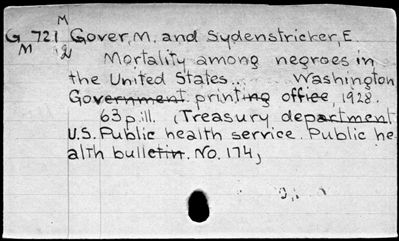 M
G 721 Gover, M. and Sydenstricker, E.
M
Mortality among negroes in
the United States... Washington
Government printing office, 1928.
63p. ill. (Treasury department
U.S. Public health service. Public he-
alth bulletin. No. 174)